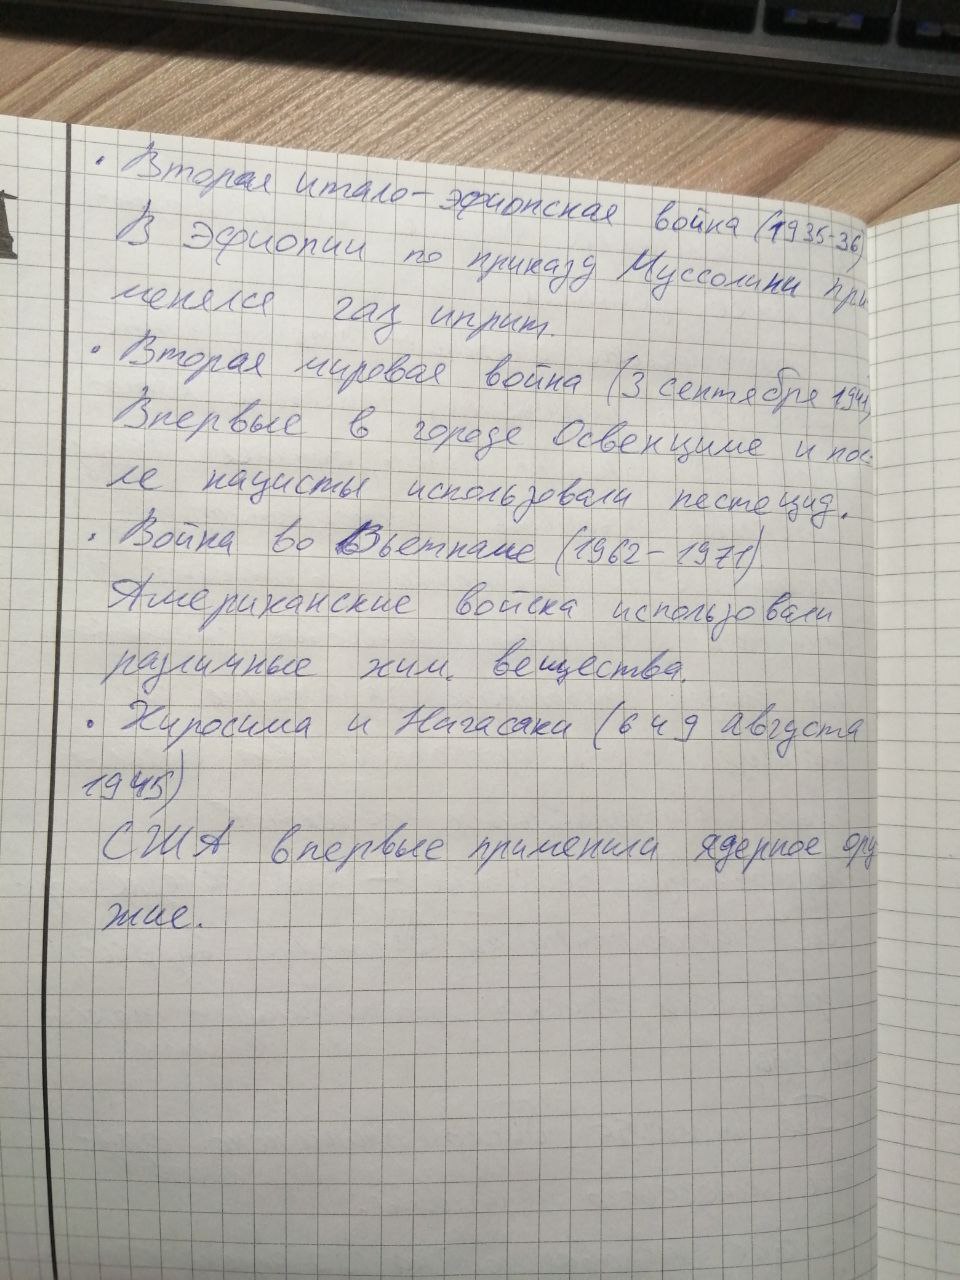 · Вторая итало-эфиопская война (1935-36)
В Эфиопии по приказу Муссолини при
менялся газ иприт.
· Вторая мировая война (3 сентября 1941)
Впервые в городе Освенциме и пос-
ле нацисты использовали пестецид.
· Война во Вьетнаме (1962-1971)
Американские войска использовали
различные хим. вещества.
· Хиросима и Нагасаки (6 и 9 августа
1945)
США впервые применила ядерное ору
жие.